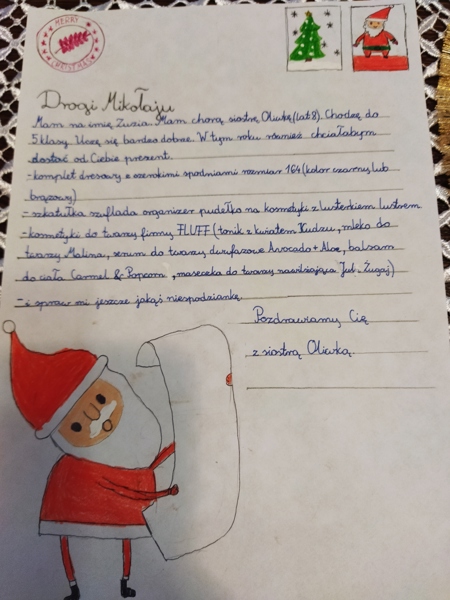 MERRY
CHRISTMAS
Drogi Mikołaju
Mam na imię Zuzia. Mam chorą siostrę Oliwkę (lat 8). Chodzę do
5 klasy. Uczę się bardzo dobrze. W tym roku również chciałabym
dostać od Ciebie prezent.
-komplet dresowy z szerokimi spodniami rozmiar 164 (kolor czarny lub
brązowy)
-szkatułka szuflada organizer pudełko na kosmetyki z lusterkiem lustrem
-kosmetyki do twarzy firmy FLUFF (tonik z kwiatem Kudzu, mleko do
twarzy Malina, serum do twarzy dwufazowe Avocado + Aloe, balsam
do ciała Carmel & Popcorn, maseczka do twarzy nawilżająca
-i spraw mi jeszcze jakąś niespodziankę.
Pozdrawiamy Cię
z siostrą Oliwką.